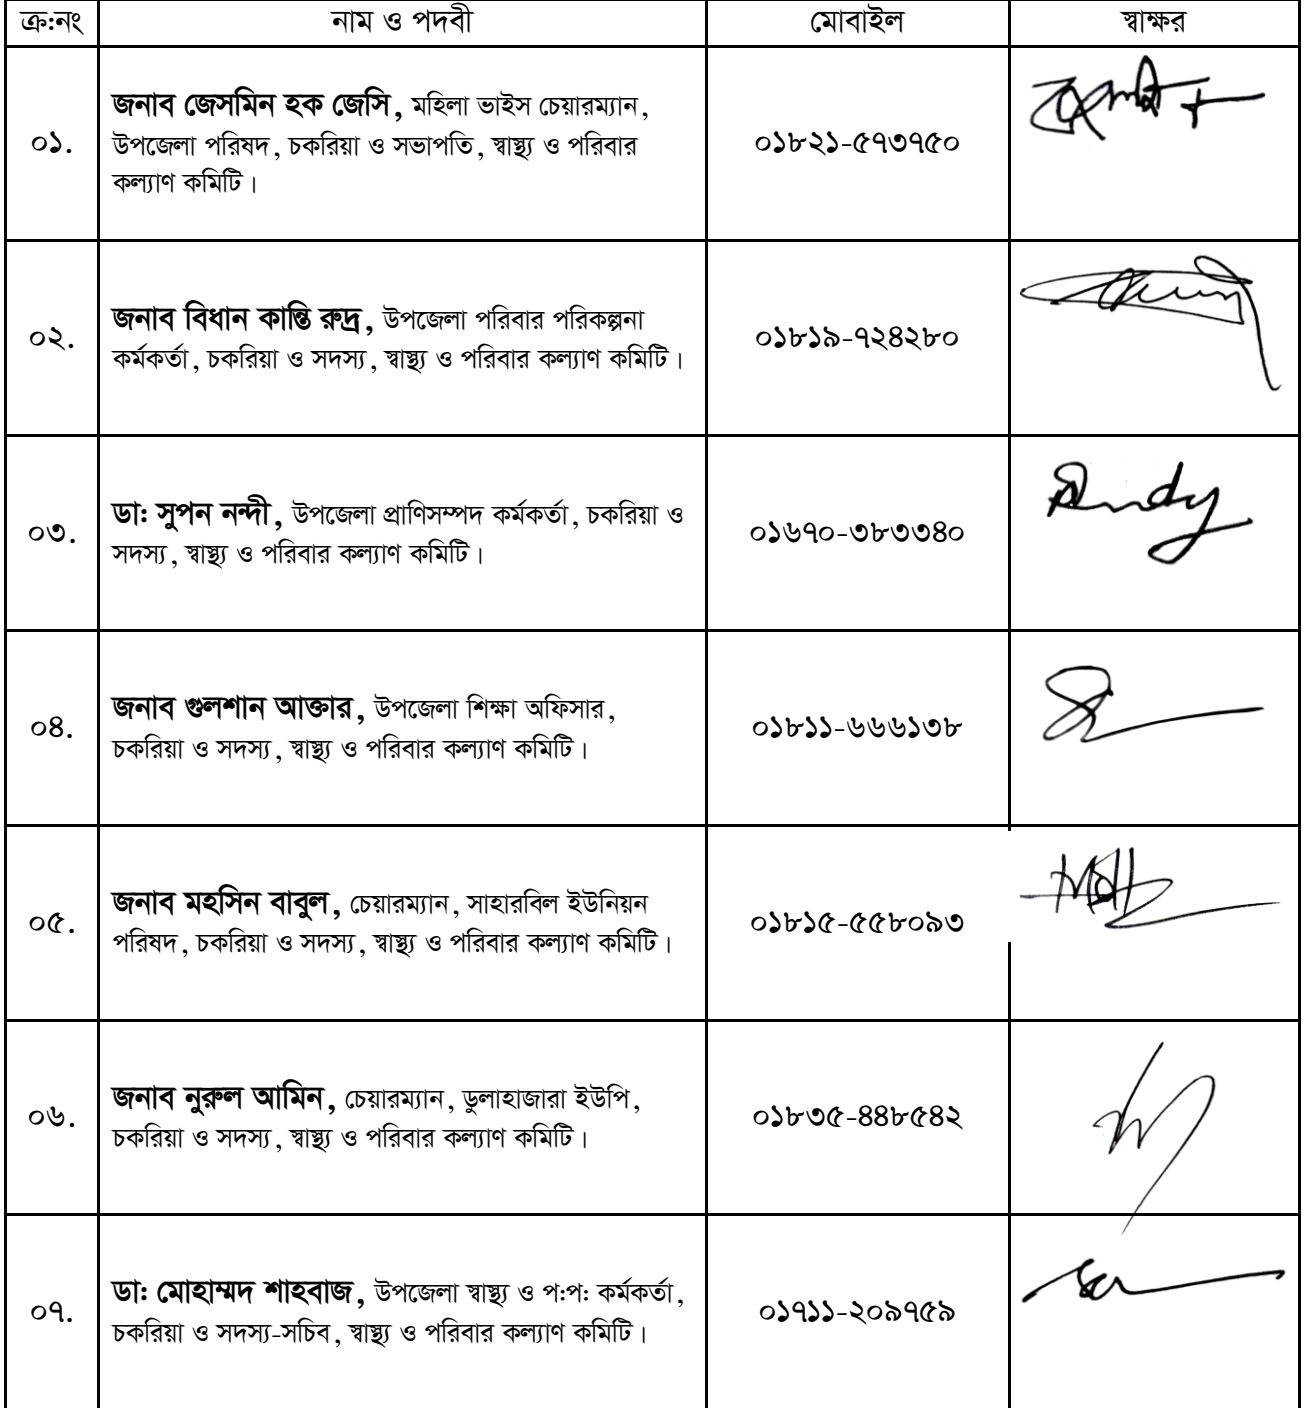 ক্র:নং নাম ও পদবী মোবাইল স্বাক্ষর
জনাব জেসমিন হক জেসি, মহিলা ভাইস চেয়ারম্যান,
০১. উপজেলা পরিষদ, চকরিয়া ও সভাপতি, স্বাস্থ্য ও পরিবার ০১৮২১-৫৭৩৭৫০
কল্যাণ কমিটি।
জনাব বিধান কান্তি রুদ্র, উপজেলা পরিবার পরিকল্পনা
০২. কর্মকর্তা, চকরিয়া ও সদস্য, স্বাস্থ্য ও পরিবার কল্যাণ কমিটি। ০১৮১৯-৭২৪২৮০
ডা: সুপন নন্দী, উপজেলা প্রাণিসম্পদ কর্মকর্তা, চকরিয়া ও
০৩. সদস্য, স্বাস্থ্য ও পরিবার কল্যাণ কমিটি। ০১৬৭০-৩৮৩৩৪০
জনাব গুলশান আক্তার, উপজেলা শিক্ষা অফিসার,
০৪. চকরিয়া ও সদস্য, স্বাস্থ্য ও পরিবার কল্যাণ কমিটি। ০১৮১১-৬৬৬১৩৮
জনাব মহসিন বাবুল, চেয়ারম্যান, সাহারবিল ইউনিয়ন
০৫. পরিষদ, চকরিয়া ও সদস্য, স্বাস্থ্য ও পরিবার কল্যাণ কমিটি। ০১৮১৫-৫৫৮০৯৩
জনাব নুরুল আমিন, চেয়ারম্যান, ডুলাহাজারা ইউপি,
০৬. চকরিয়া ও সদস্য, স্বাস্থ্য ও পরিবার কল্যাণ কমিটি। ০১৮৩৫-৪৪৮৫৪২
ডা: মোহাম্মদ শাহবাজ, উপজেলা স্বাস্থ্য ও প:প: কর্মকর্তা,
০৭. চকরিয়া ও সদস্য-সচিব, স্বাস্থ্য ও পরিবার কল্যাণ কমিটি। ০১৭১১-২০৯৭৫৯